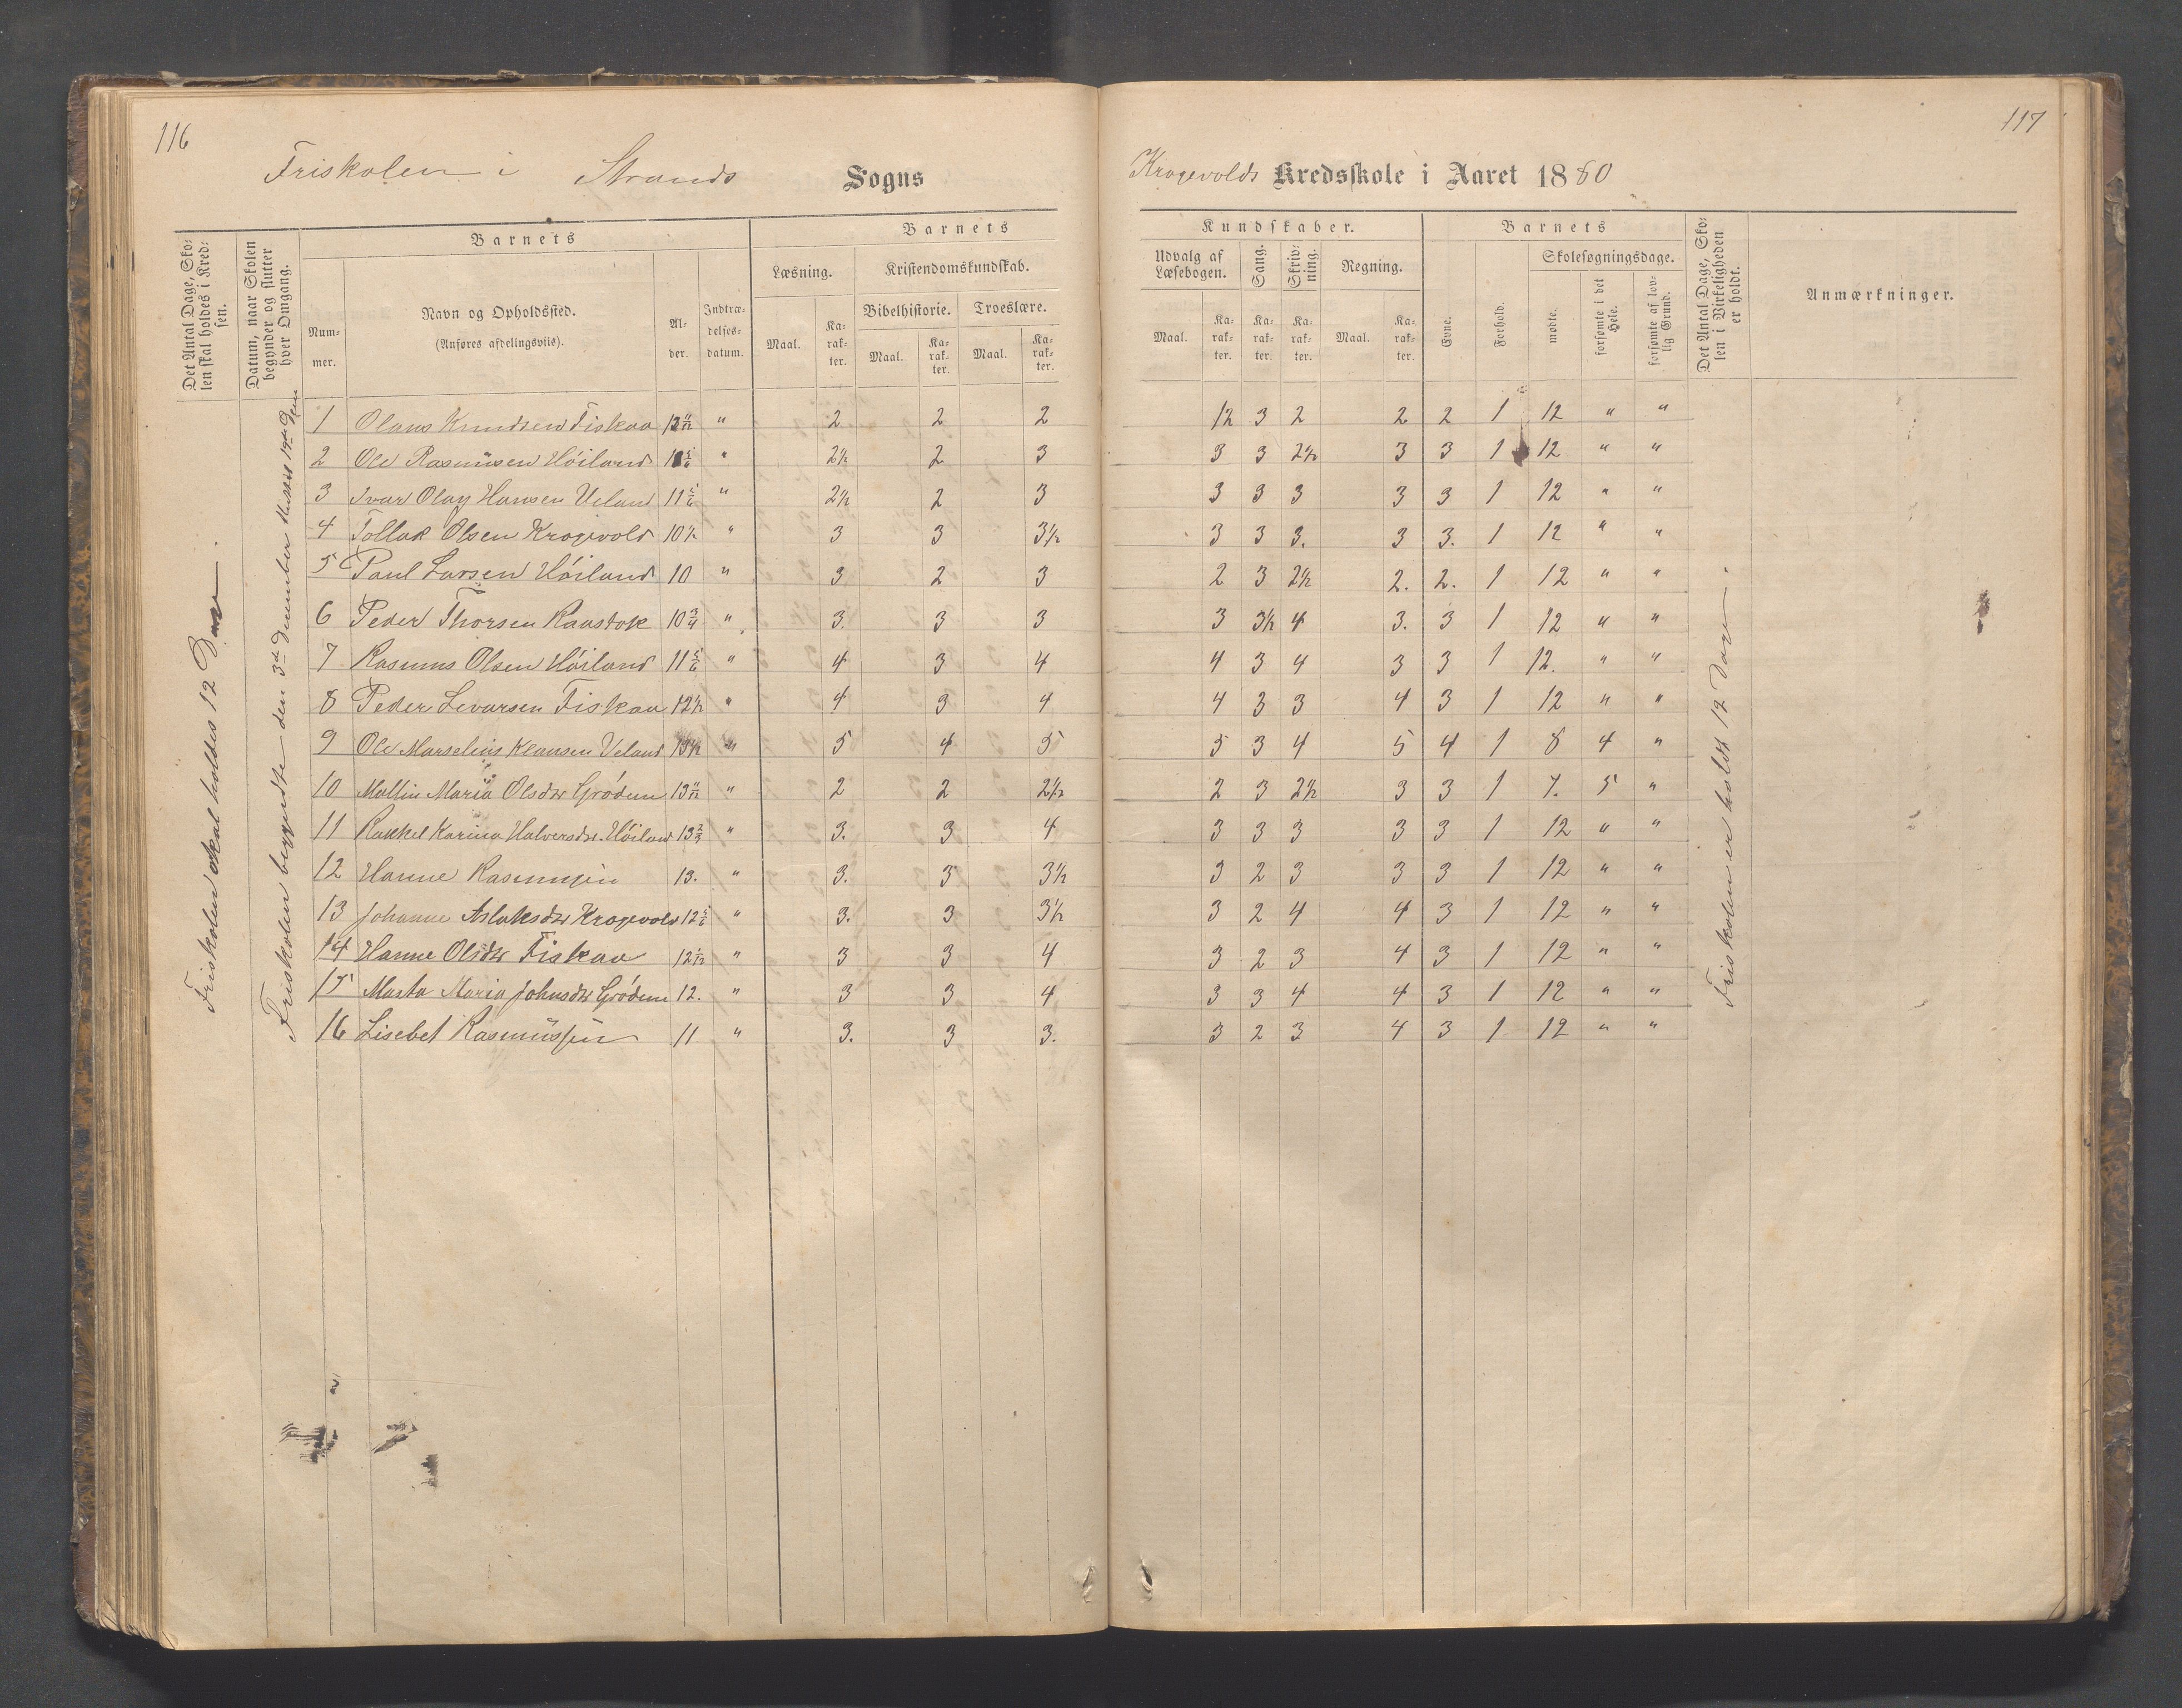 116
Friskolen i Strands Sogns
Det Antal Dage, Skolen skal holdes i Kredsen.
Datum, naar Skolen begynder og slutter hver Omgang.
Barnets
Barnets
Nummer.
Navn og Opholdssted.
(Anføres afdelingsviis).
Alder.
Indtrædelsesdatum.
Læsning.
Kristendomskundskab.
Bibelhistorie.
Troeslære.
Maal. Karakter. Maal. Karakter. Maal. Karakter.
Friskolen skal holdes 12 Dage.
Friskolen begyndte den 3die December sluttet 19de Dcm
1 Olaus Knudsen Fiskaa 13 11/12 " 2 2 2
2 Ole Rasmusen Höiland " 2½ 2 3
3 Ivar Olay Hansen Veland 11 5/6 " 2½ 2 3
4 Tollak Olsen Krogevold 10½ " 3 3 3½
5 Paul Larsen Höiland 10 " 3 2 3
6 Peder Thorsen Raustok 10¾ " 3 3 3
7 Rasmus Olsen Höiland 11 5/6 " 4 3 4
8 Peder Levarsen Fiskaa 12½ " 4 3 4
9 Ole Marselius Klausen Veland 13½ " 5 4 5
10 Mallin Maria Olsdtr Grödem 13 11/12 " 2 2 2½
11 Rakkel Karina Halversdtr. Höiland 13 2/3 " 3. 3 4
12 Hanne Rasmussen 13. " 3. 3 3½
13 Johanne Aslaksdtr Krogevold 12 5/6 " 3. 3 3½
14 Hanne Olsdtr Fiskaa 12 1/12 " 3 3 4
15 Marta Maria Johnsdtr Grödem 12. " 3 3 4
16 Lisebet Rasmussen 11 " 3. 3 3.
117
Krogevolds Kredsskole i Aaret 1880
Kundskaber.
Barnets
Udvalg af Læsebogen.
Sang.
Skrivning.
Regning.
Evne.
Forhold.
Skolesøgningsdage.
mødte.
forsømte i det Hele.
forsømte af lovlig Grund.
Det Antal Dage, Skolen i Virkeligheden er holdt.
Anmærkninger.
Maal. Karakter. Karakter. Karakter. Maal. Karakter.
12 3 2 2 2 1 12 " "
3 3 2½ 3 3 1 12 " "
3 3 3 3 3 1 12 " "
3 3 3. 3 3. 1 12 " "
2 3 2½ 2. 2. 1 12 " "
3 3½ 4 3. 3 1 12 " "
4 3 4 3 3 1 12. " "
4 3 3 4 3 1 12 " "
5 3 4 5 4 1 8 4 "
2 3 2½ 3 3 1 7. 5 "
3 3 3 3 3 1 12 " "
3 2 3 3 3 1 12 " "
3 2 4 4 3 1 12 " "
3 2 3 4 3 1 12 " "
3 3 4 4 3 1 12 " "
3 2 3 4 3 1 12 " "
Friskolen er holdt 12 Dage.